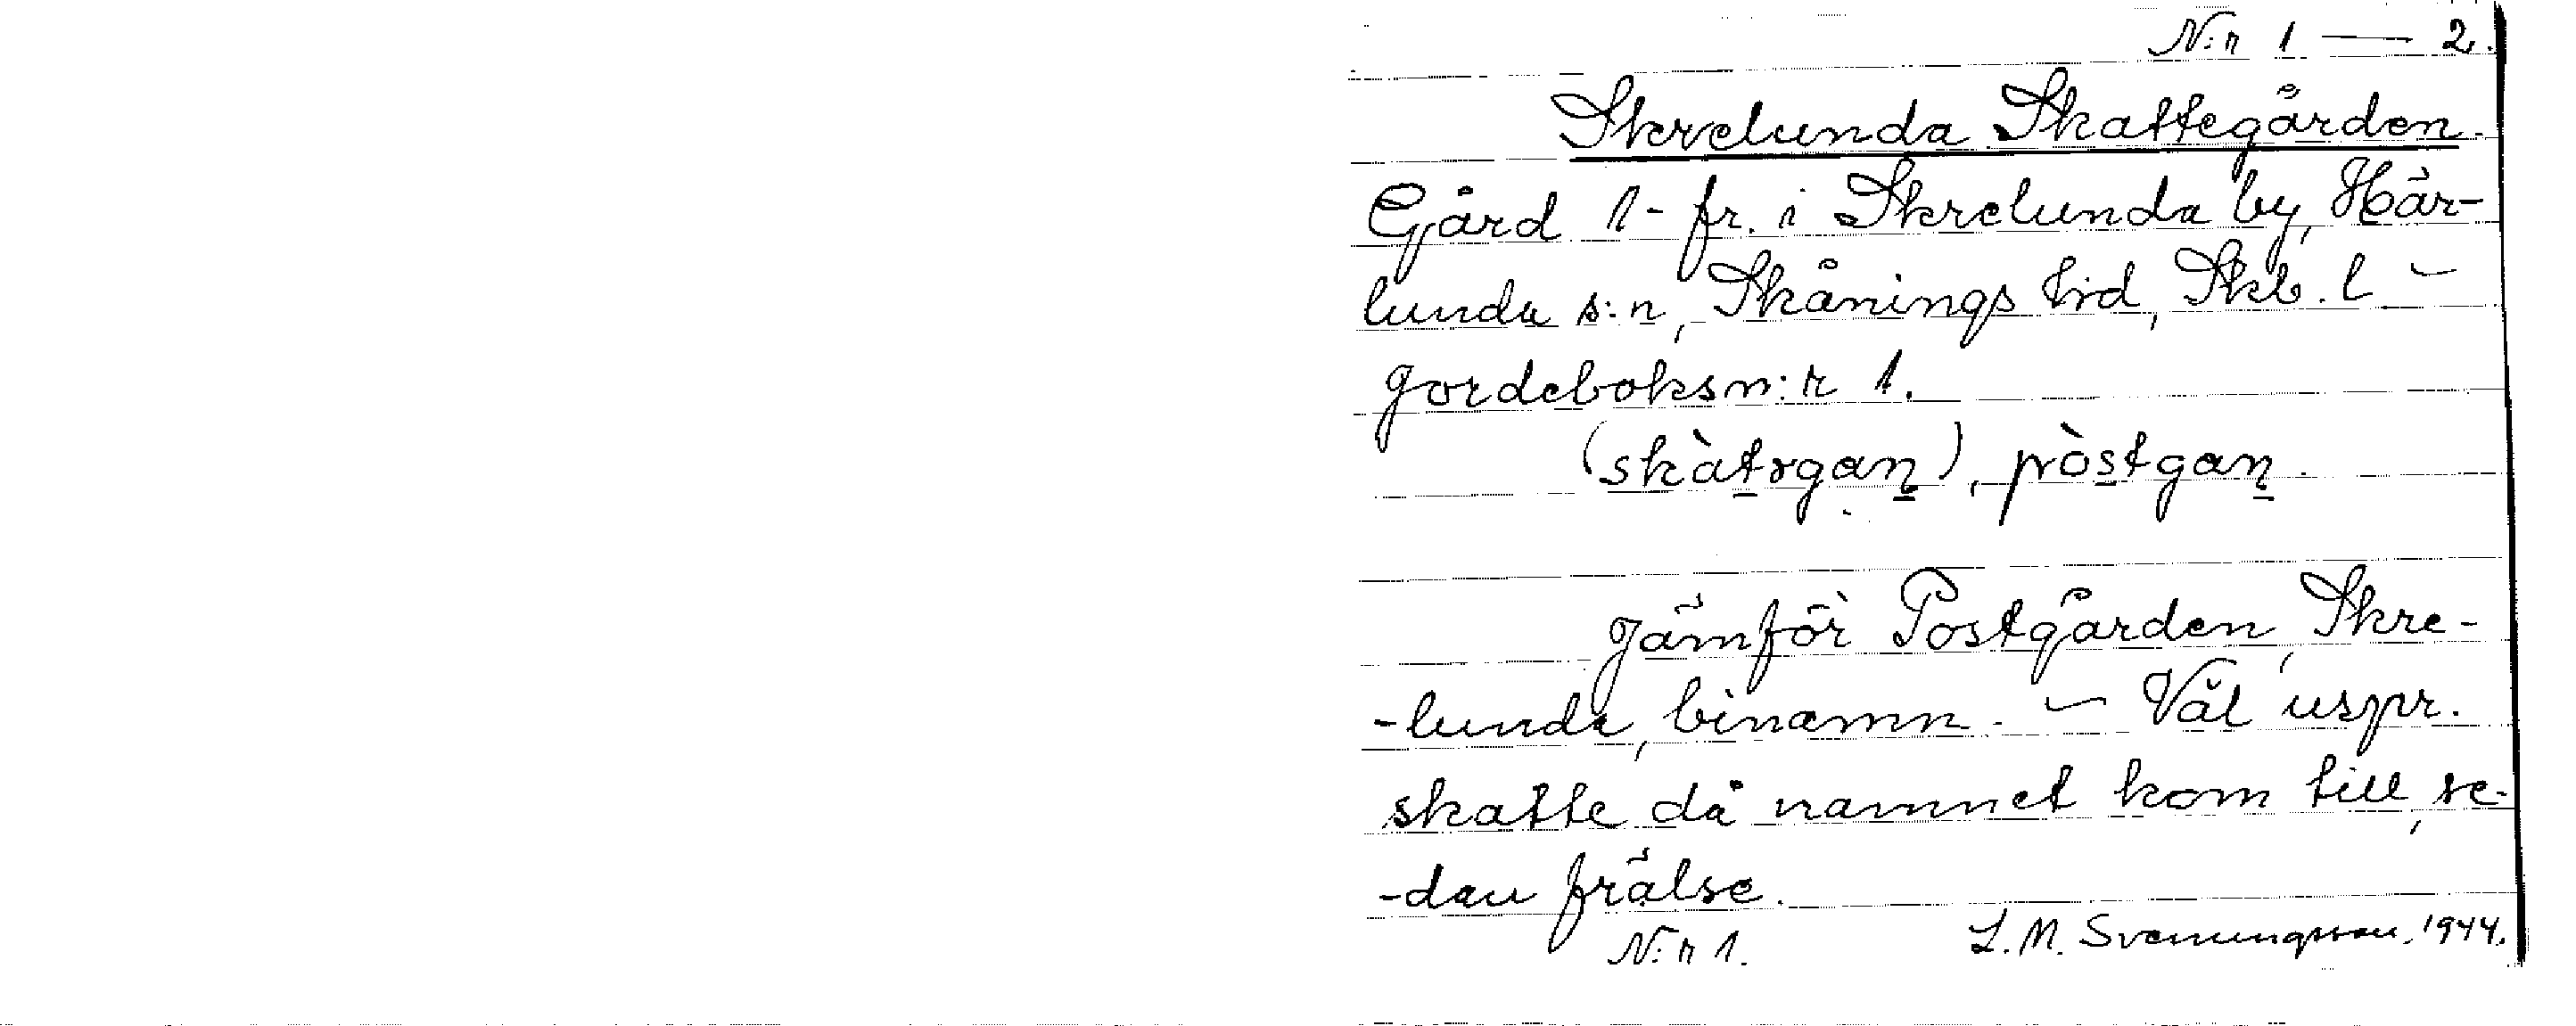 N:r 1 — 2.
Skrelunda Skattegården.
Gård 1- fr. i Skrelunda by, Här-
lunda s:n, Skånings hd, Skb. l –
jordeboksn:r 1.
(skàtrgaṉ), pòs̱tgaṉ.
Jämför Postgården, Skre-
-lunda, binamn. – Väl urspr.
skatte då namnet kom till, se-
-dan frälse.
N:r 1.
L. M. Svenungsson. 1944.